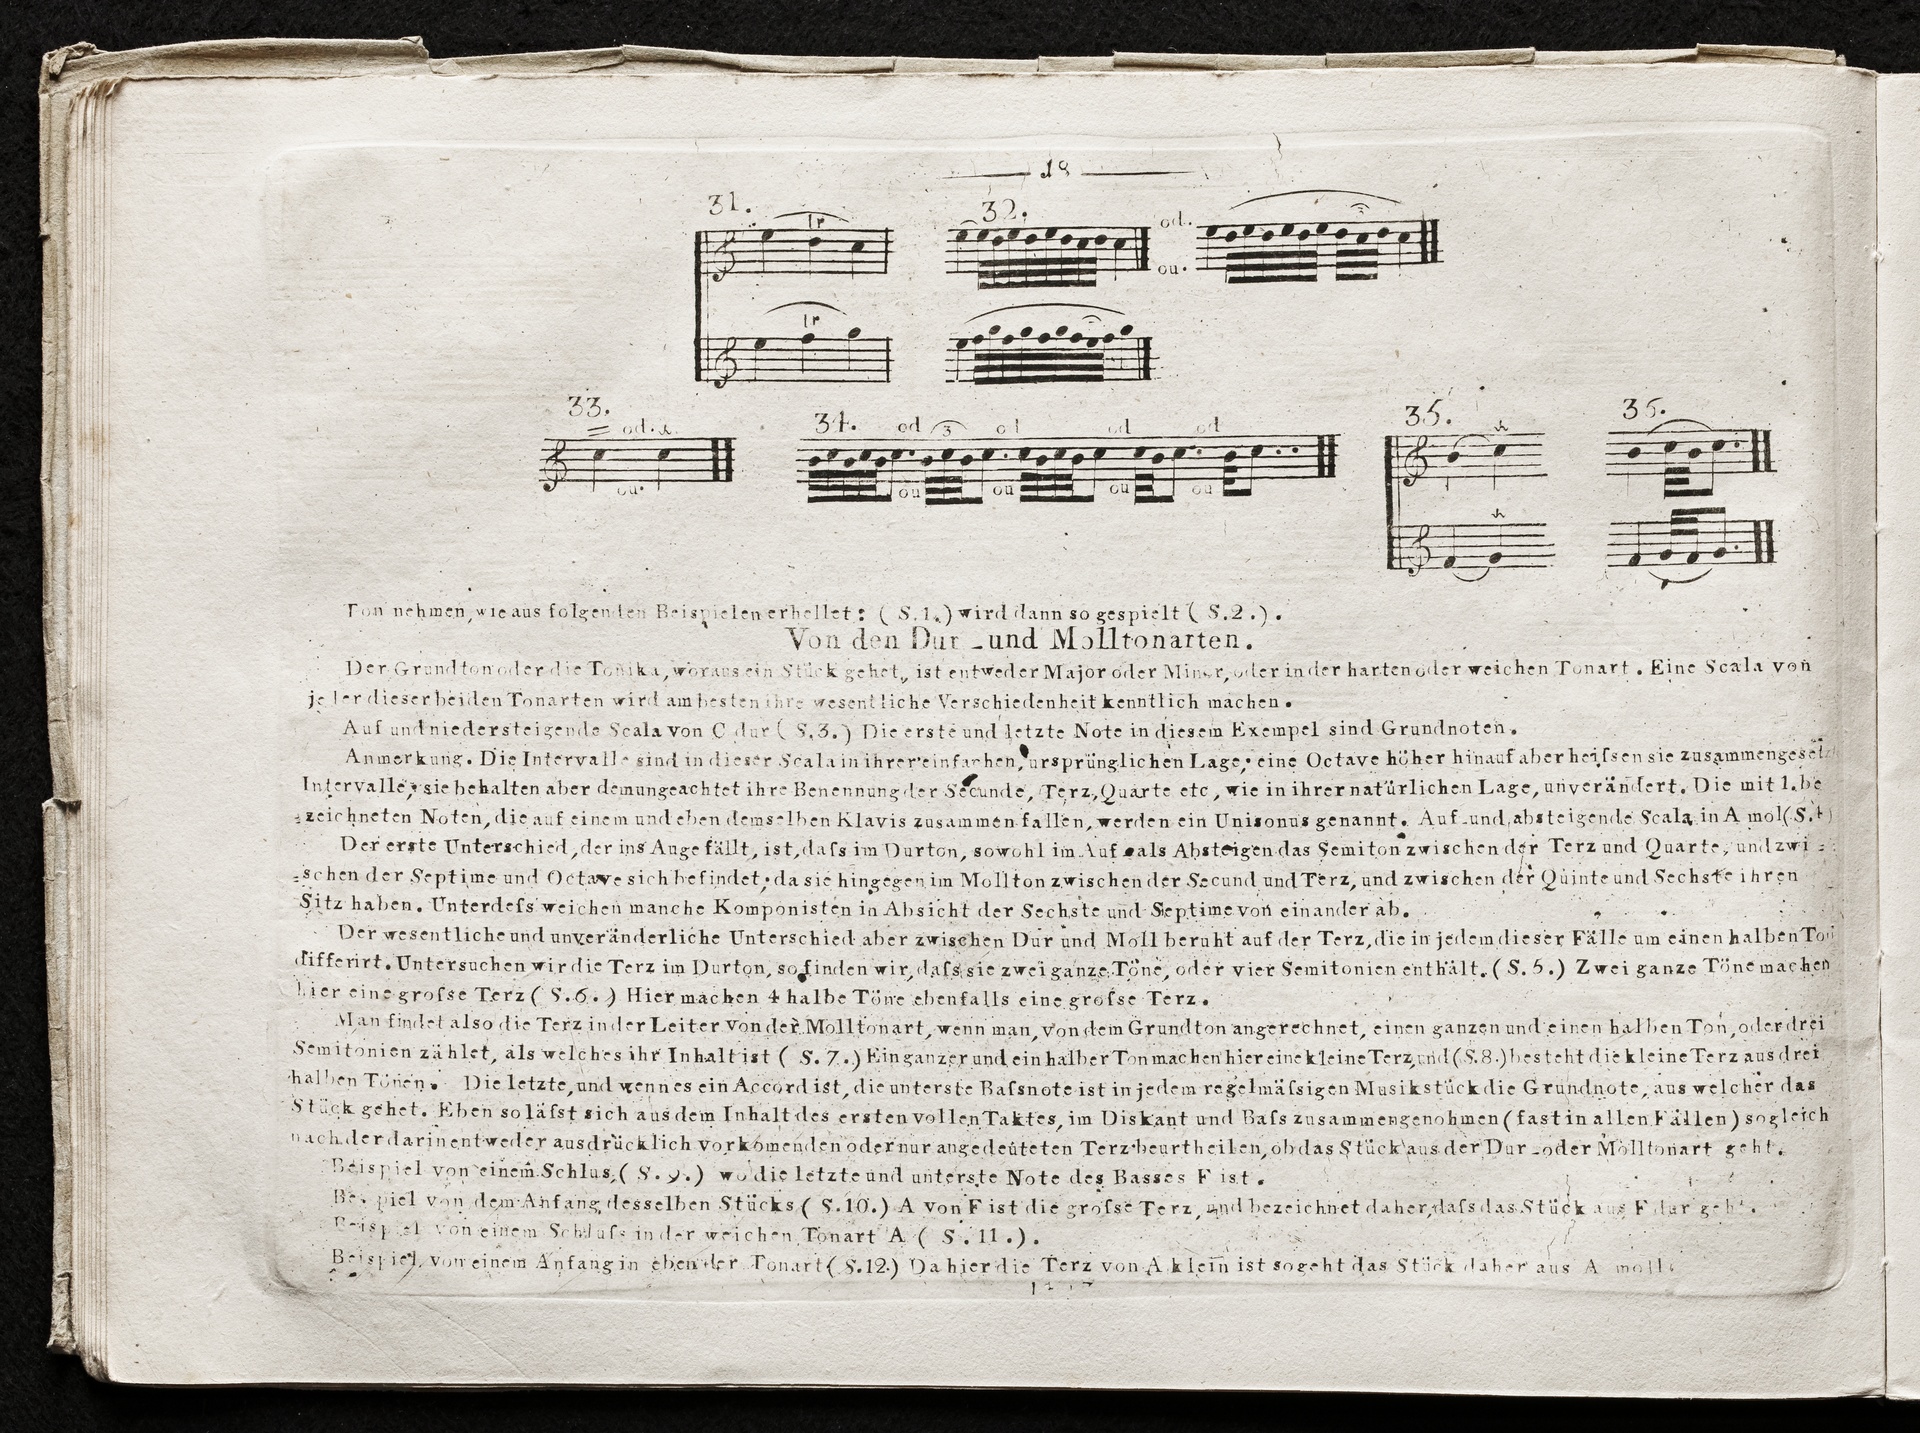 18
31. 32. od. ou.
33. od. ou. 34. od 3 od od od ou ou ou ou 35. 36.
Ton nehmen, wie aus folgenden Beispielen erhellet: ( S.1.) wird dann so gespielt ( S.2.).
Von den Dur - und Molltonarten.
Der Grundton oder die Tonika, woraus ein Stück gehet, ist entweder Major oder Minor, oder in der harten oder weichen Tonart. Eine Scala von
jeder dieser beiden Tonarten wird am besten ihre wesentliche Verschiedenheit kenntlich machen.
Auf und niedersteigende Scala von C dur ( S.3.) Die erste und letzte Note in diesem Exempel sind Grundnoten.
Anmerkung. Die Intervalle sind in dieser Scala in ihrer einfachen, ursprünglichen Lage; eine Octave höher hinauf aber heiſsen sie zusammengesetzte
Intervalle; sie behalten aber demungeachtet ihre Benennung der Secunde, Terz, Quarte etc, wie in ihrer natürlichen Lage, unverändert. Die mit 1. be
=zeichneten Noten, die auf einem und eben demselben Klavis zusammen fallen, werden ein Unisonus genannt. Auf-und absteigende Scala in A mol( S.4)
Der erste Unterschied, der ins Auge fällt, ist, daſs im Durton, sowohl im Auf - als Absteigen das Semiton zwischen der Terz und Quarte, und zwi =
=schen der Septime und Octave sich befindet; da sie hingegen im Mollton zwischen der Secund und Terz, und zwischen der Quinte und Sechste ihren
Sitz haben. Unterdeſs weichen manche Komponisten in Absicht der Sechste und Septime von einander ab.
Der wesentliche und unveränderliche Unterschied aber zwischen Dur und Moll beruht auf der Terz, die in jedem dieser Fälle um einen halben Ton
differirt. Untersuchen wir die Terz im Durton, so finden wir, daſs sie zwei ganze Töne, oder vier Semitonien enthält. ( S.5.) Zwei ganze Töne machen
hier eine groſse Terz ( S.6.) Hier machen 4 halbe Töne ebenfalls eine groſse Terz.
Man findet also die Terz in der Leiter von der Molltonart, wenn man, von dem Grundton angerechnet, einen ganzen und einen halben Ton, oder drei
Semitonien zählet, als welches ihr Inhalt ist ( S.7.) Ein ganzer und ein halber Ton machen hier eine kleine Terz, und (S.8.) besteht die kleine Terz aus drei
halben Tönen. Die letzte, und wenn es ein Accord ist, die unterste Baſsnote ist in jedem regelmäſsigen Musikstück die Grundnote, aus welcher das
Stück gehet. Eben so läſst sich aus dem Inhalt des ersten vollen Taktes, im Diskant und Baſs zusammengenohmen (fast in allen Fällen) sogleich
nach der darin entweder ausdrücklich vorkomenden oder nur angedeüteten Terz beurtheilen, ob das Stück aus der Dur-oder Molltonart geht.
Beispiel von einem Schlus, ( S.9.) wo die letzte und unterste Note des Basses F ist.
Beispiel von dem Anfang desselben Stücks ( S.10.) A von F ist die groſse Terz, und bezeichnet daher, daſs das Stück aus F dur geht.
Beispiel von einem Schluſs in der weichen Tonart A ( S.11.).
Beispiel von einem Anfang in eben der Tonart ( S.12.) Da hier die Terz von A klein ist so geht das Stück daher aus A moll.